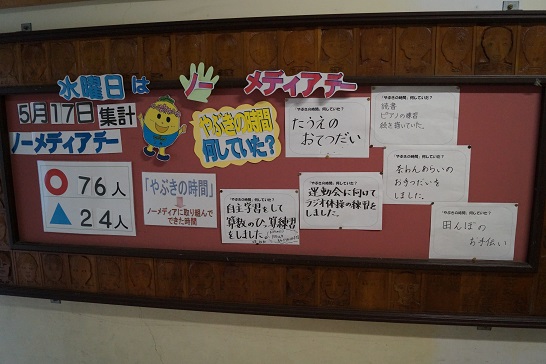 水曜日は ノー メディアデー
5月17日集計
ノーメディアデー
○ 76人
▲ 24人
やぶきの時間
何していた?
「やぶきの時間」
ノーメディアに取り組んで
できた時間
「やぶきの時間」何していた?
自主学習をして
算数のひっ算練習
をしました。
「やぶきの時間」何していた?
たうえの
おてつだい
「やぶきの時間」何していた?
運動会に向けて
ラジオ体操の練習を
しました。
「やぶきの時間」何していた?
読書
ピアノの練習
絵を描いていた。
「やぶきの時間」何していた?
茶わんあらいの
お手つだいをし
ました。
「やぶきの時間」何していた?
田んぼの
お手伝い